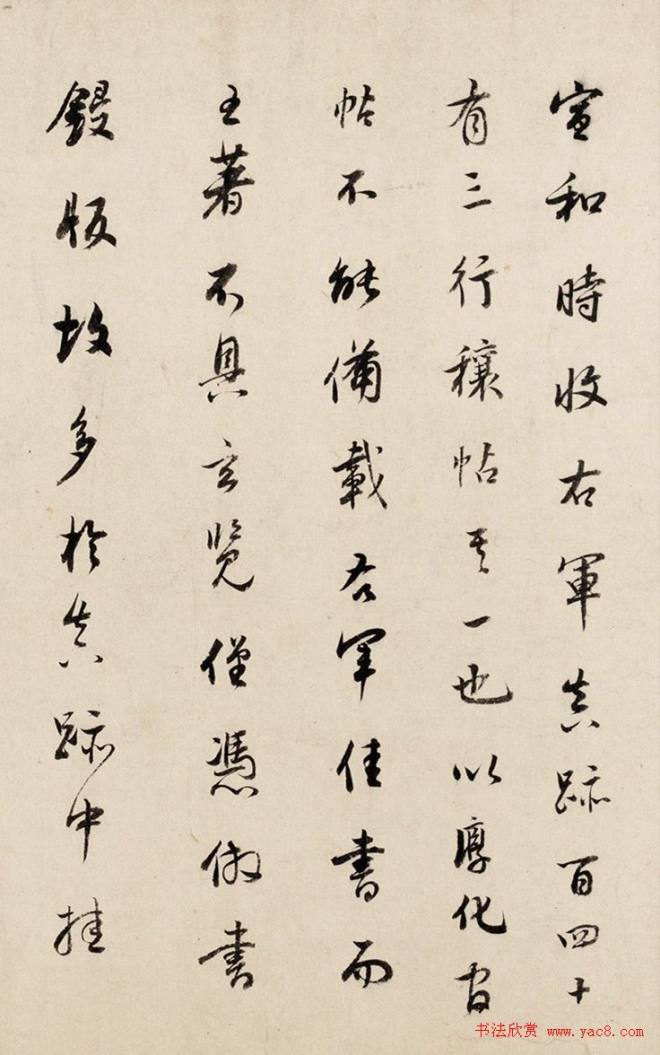 宣和時收右軍真跡百四十
有三行穰帖其一也以淳化官
帖不能備載右軍佳書而
王著不具玄覽僅憑倣書
鋟版故多於真跡中挂
书法欣赏 www.yac8.com